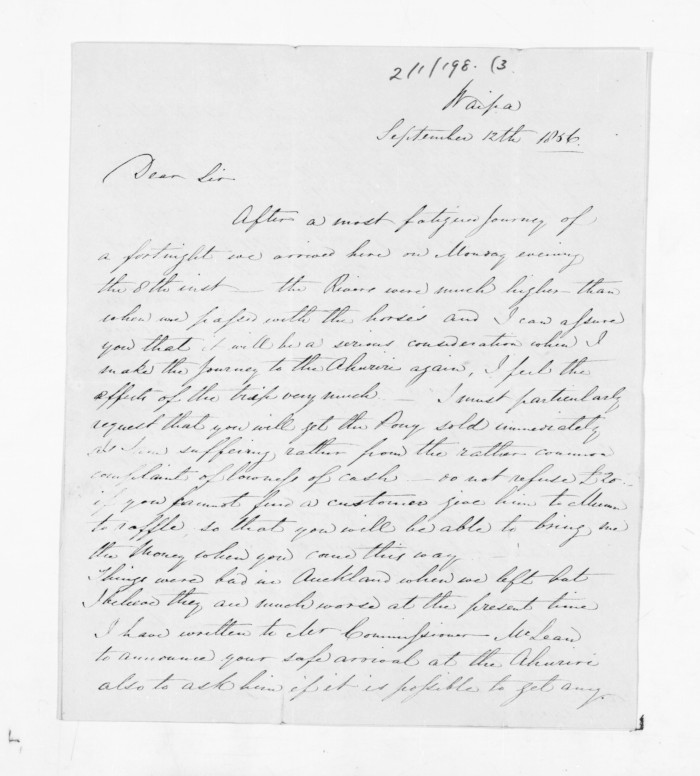 2/1/198. (3
Waipa
September 12th 1856.
Dear Sir
After a most fatigued Journey of
a fortnight we arrived here on Monday evening
the 8th inst — the Rivers were much higher than
when we passed with the horses and I can assure
you that it will be a serious consideration when I
make the Journey to the Ahuriri again, I feel the
effects of the trip very much — I must particularly
request that you will get the Pony sold immediately
as I am suffering rather from the rather common
complaint of lowness of cash — do not refuse £20.
if you cannot find a customer give him to
to raffle, so that you will be able to bring me
the Money when you come this way
Things were bad in Auckland when we left but
I believe they are much worse at the present time
I have written to Mr Commissioner McLean
to announce your safe arrival at the Ahuriri
also to ask him if it is possible to get any